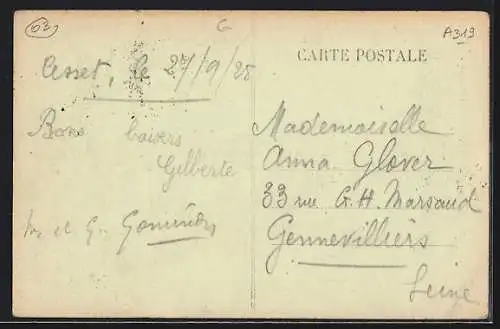 63
G
A319
CARTE POSTALE
Cusset, le 27/9/25
Bons baisers
Gilberte
M. et G.
Mademoiselle
Anna Glover
33 rue G. H. Marsaud
Gennevilliers
Seine